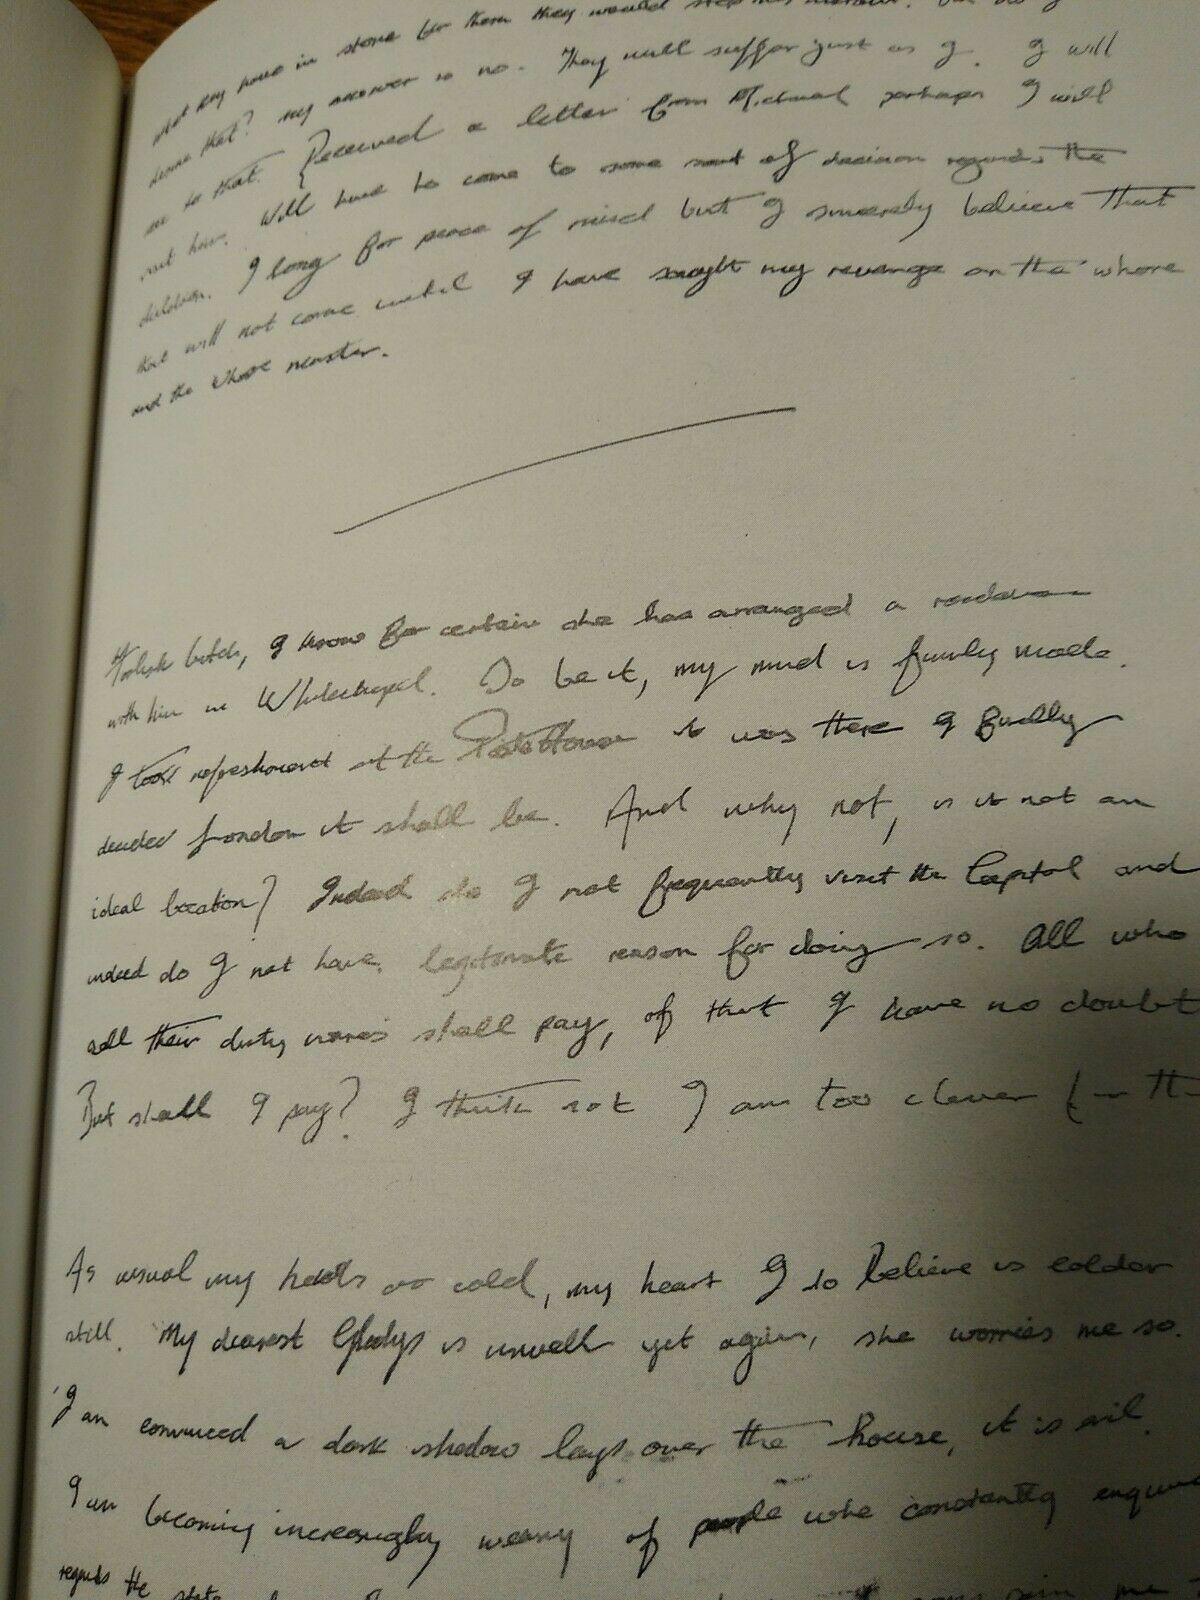 what they have in store for them they would stop this instant. But do I
desire that? my answer is no. They will suffer just as I. I will
see to that. Received a letter from Michael perhaps I will
visit him. Will have to come to some sort of decision regards the
children. I long for peace of mind but I sincerely believe that
that will not come until I have sought my revenge on the whore
and the whore master.
Foolish bitch, I know for certain she has arranged a rendezvous
with him in Whitechapel. So be it, my mind is firmly made.
I took refreshment at the Poste House it was there I finally
decided London it shall be. And why not, is it not an
ideal location? Indeed do I not frequently visit the Capital and
indeed do I not have legitimate reason for doing so. All who
sell their dirty wares shall pay, of that I have no doubt
But shall I pay? I think not I am too clever for th
As usual my hands are cold, my heart I do believe is colder
still. My dearest Gladys is unwell yet again, she worries me so.
I am convinced a dark shadow lays over the house, it is evil.
I am becoming increasingly weary of people who constantly enquire
regards the state